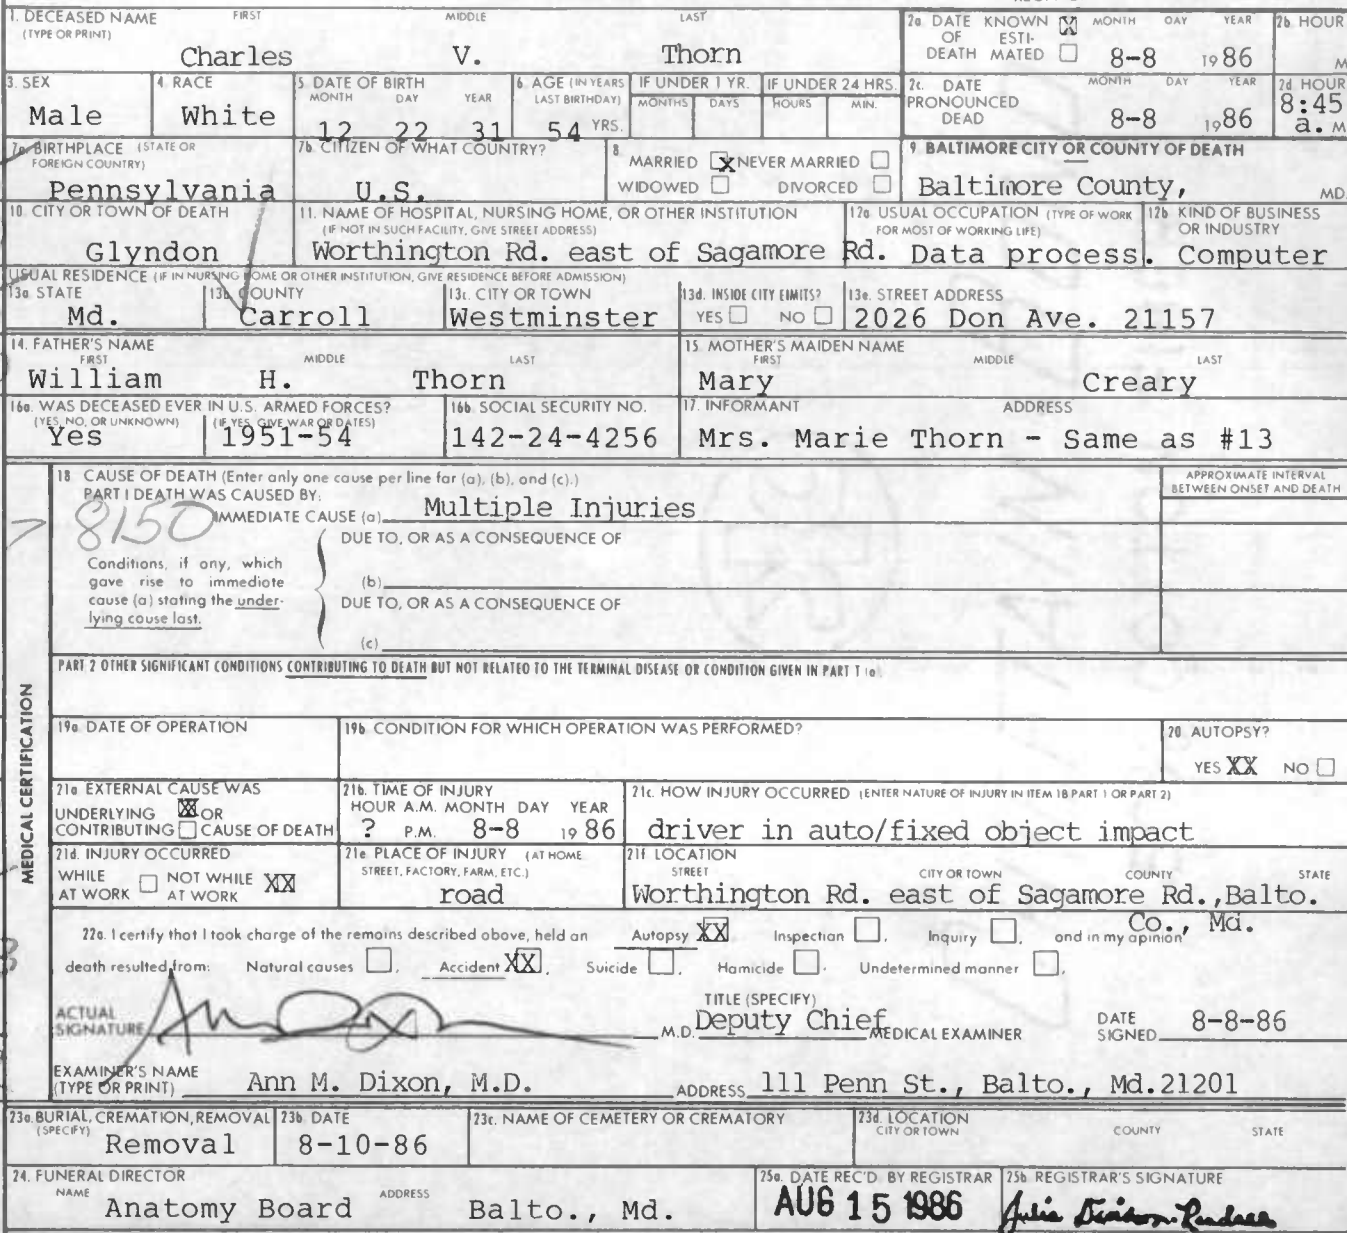 1. DECEASED NAME FIRST MIDDLE LAST
(TYPE OR PRINT)
Charles V. Thorn
2a. DATE KNOWN [X] MONTH DAY YEAR
OF ESTI-
DEATH MATED ☐ 8-8 1986
2b. HOUR
M
3. SEX
Male
4. RACE
White
5. DATE OF BIRTH
MONTH DAY YEAR
12 22 31
6. AGE (IN YEARS
LAST BIRTHDAY)
54 YRS.
IF UNDER 1 YR.
MONTHS DAYS
IF UNDER 24 HRS.
HOURS MIN.
2c. DATE MONTH DAY YEAR
PRONOUNCED
DEAD 8-8 1986
2d. HOUR
8:45
a. M
7a. BIRTHPLACE (STATE OR
FOREIGN COUNTRY)
Pennsylvania
7b. CITIZEN OF WHAT COUNTRY?
U.S.
8
MARRIED [X] NEVER MARRIED ☐
WIDOWED ☐ DIVORCED ☐
9. BALTIMORE CITY OR COUNTY OF DEATH
Baltimore County, MD.
10. CITY OR TOWN OF DEATH
Glyndon
11. NAME OF HOSPITAL, NURSING HOME, OR OTHER INSTITUTION
(IF NOT IN SUCH FACILITY, GIVE STREET ADDRESS)
Worthington Rd. east of Sagamore Rd.
12a. USUAL OCCUPATION (TYPE OF WORK
FOR MOST OF WORKING LIFE)
Data process.
12b. KIND OF BUSINESS
OR INDUSTRY
Computer
USUAL RESIDENCE (IF IN NURSING HOME OR OTHER INSTITUTION, GIVE RESIDENCE BEFORE ADMISSION)
13a. STATE
Md.
13b. COUNTY
Carroll
13c. CITY OR TOWN
Westminster
13d. INSIDE CITY LIMITS?
YES ☐ NO ☐
13e. STREET ADDRESS
2026 Don Ave. 21157
14. FATHER'S NAME
FIRST MIDDLE LAST
William H. Thorn
15. MOTHER'S MAIDEN NAME
FIRST MIDDLE LAST
Mary Creary
16a. WAS DECEASED EVER IN U.S. ARMED FORCES?
(YES, NO, OR UNKNOWN) (IF YES, GIVE WAR OR DATES)
Yes 1951-54
16b. SOCIAL SECURITY NO.
142-24-4256
17. INFORMANT ADDRESS
Mrs. Marie Thorn - Same as #13
MEDICAL CERTIFICATION
18 CAUSE OF DEATH (Enter only one cause per line for (a), (b), and (c).)
PART I DEATH WAS CAUSED BY:
8150
IMMEDIATE CAUSE (a) Multiple Injuries
APPROXIMATE INTERVAL
BETWEEN ONSET AND DEATH
DUE TO, OR AS A CONSEQUENCE OF
Conditions, if any, which
gave rise to immediate
cause (a) stating the under-
lying cause last.
(b)
DUE TO, OR AS A CONSEQUENCE OF
(c)
PART 2 OTHER SIGNIFICANT CONDITIONS CONTRIBUTING TO DEATH BUT NOT RELATED TO THE TERMINAL DISEASE OR CONDITION GIVEN IN PART 1 (a).
19a. DATE OF OPERATION
19b. CONDITION FOR WHICH OPERATION WAS PERFORMED?
20. AUTOPSY?
YES XX NO ☐
21a. EXTERNAL CAUSE WAS
UNDERLYING [X] OR
CONTRIBUTING ☐ CAUSE OF DEATH
21b. TIME OF INJURY
HOUR A.M. MONTH DAY YEAR
? P.M. 8-8 1986
21c. HOW INJURY OCCURRED (ENTER NATURE OF INJURY IN ITEM 18 PART 1 OR PART 2)
driver in auto/fixed object impact
21d. INJURY OCCURRED
WHILE NOT WHILE
AT WORK ☐ AT WORK XX
21e. PLACE OF INJURY (AT HOME
STREET, FACTORY, FARM, ETC.)
road
21f. LOCATION
STREET CITY OR TOWN COUNTY STATE
Worthington Rd. east of Sagamore Rd.,Balto.
Co., Md.
22a. I certify that I took charge of the remains described above, held an Autopsy XX Inspection ☐, Inquiry ☐, and in my opinion
death resulted from: Natural causes ☐, Accident XX, Suicide ☐, Homicide ☐. Undetermined manner ☐.
ACTUAL
SIGNATURE
M.D.
TITLE (SPECIFY)
Deputy Chief MEDICAL EXAMINER
DATE
SIGNED 8-8-86
EXAMINER'S NAME
(TYPE OR PRINT) Ann M. Dixon, M.D. ADDRESS 111 Penn St., Balto., Md.21201
23a. BURIAL, CREMATION, REMOVAL
(SPECIFY)
Removal
23b. DATE
8-10-86
23c. NAME OF CEMETERY OR CREMATORY
23d. LOCATION
CITY OR TOWN COUNTY STATE
24. FUNERAL DIRECTOR
NAME ADDRESS
Anatomy Board Balto., Md.
25a. DATE REC'D BY REGISTRAR
AUG 15 1986
25b. REGISTRAR'S SIGNATURE